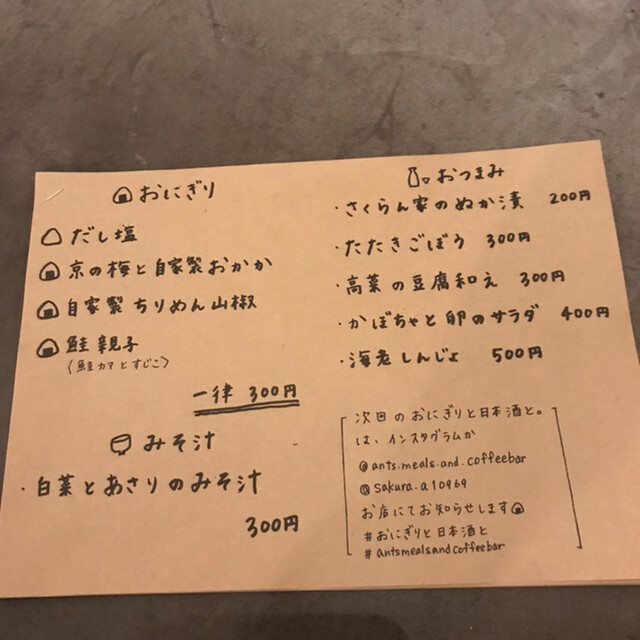 おにぎり
だし塩
京の梅と自家製おかか
自家製ちりめん山椒
鮭親子
〈鮭カマとすじこ〉
一律 300円
みそ汁
・白菜とあさりのみそ汁
300円
おつまみ
・さくらん家のぬか漬 200円
・たたきごぼう 300円
・高菜の豆腐和え 300円
・かぼちゃと卵のサラダ 400円
・海老しんじょ 500円
次回のおにぎりと日本酒と。
は、インスタグラムか
@ants.meals.and.coffeebar
@sakura.a10969
お店にてお知らせします
#おにぎりと日本酒と
#antsmealsandcoffeebar